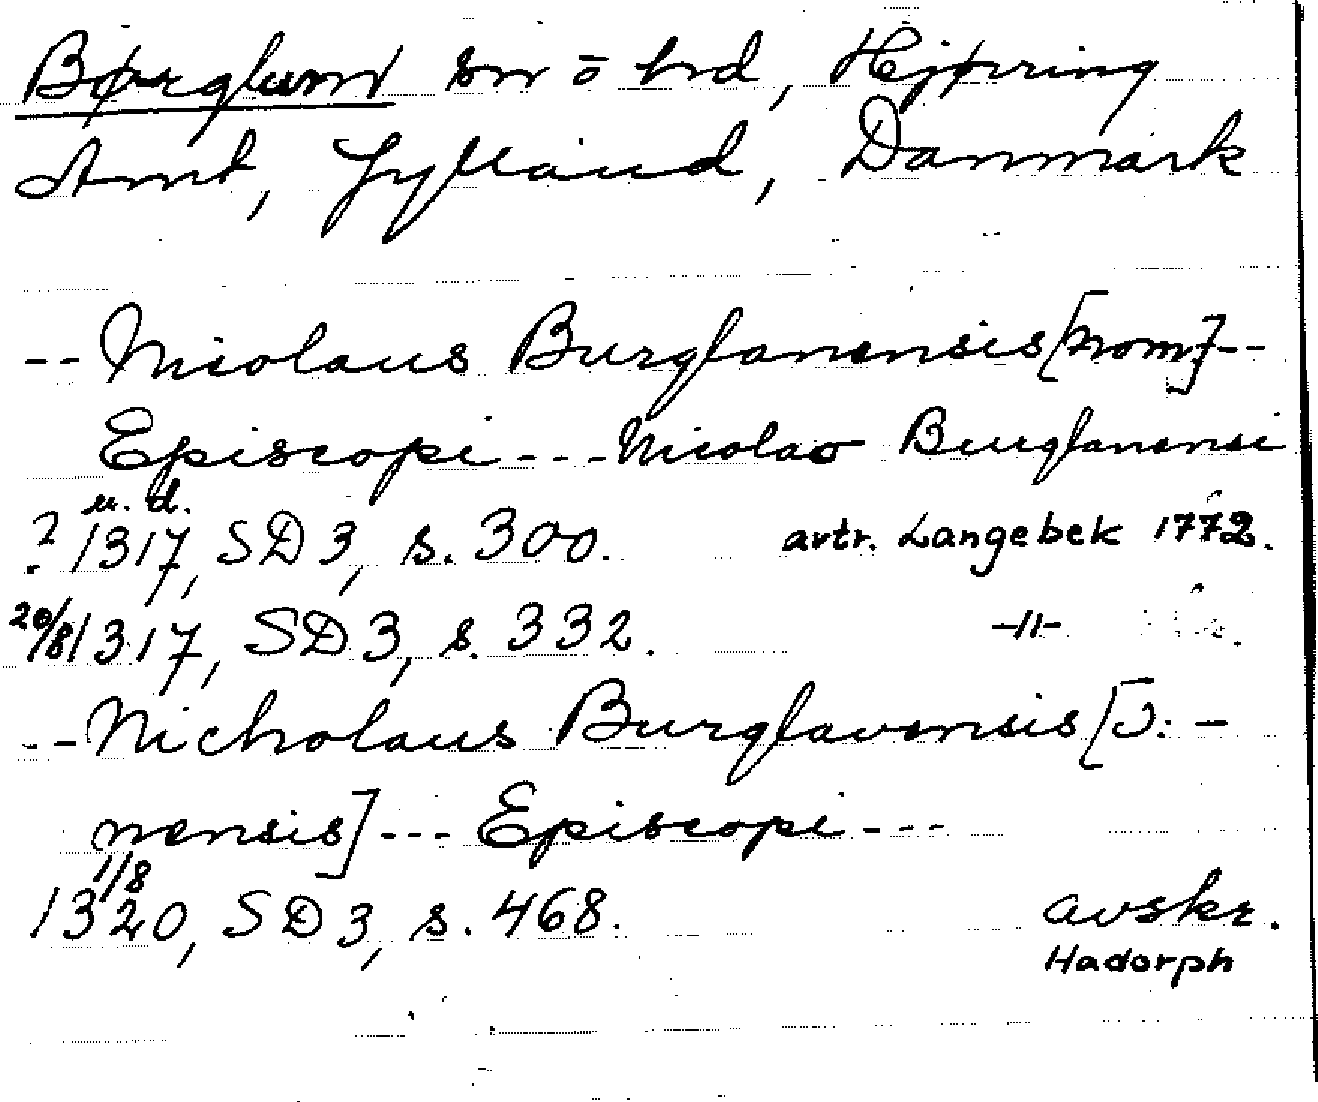 Børglum sn ō hd, Hjørring
Amt, Jylland, Danmark
-- Nicolaus Burglanensis [nom.] --
Episcopi --- Nicolao Burglanensi
u. d.
? 1317, SD 3, s. 300. avtr. Langebek 1772.
20/8 1317, SD 3, s. 332. -"-
-- Nicholaus Burglavensis [ɔ: -
nensis] --- Episcopi ---
1/8
1320, SD 3, s. 468. avskr.
Hadorph